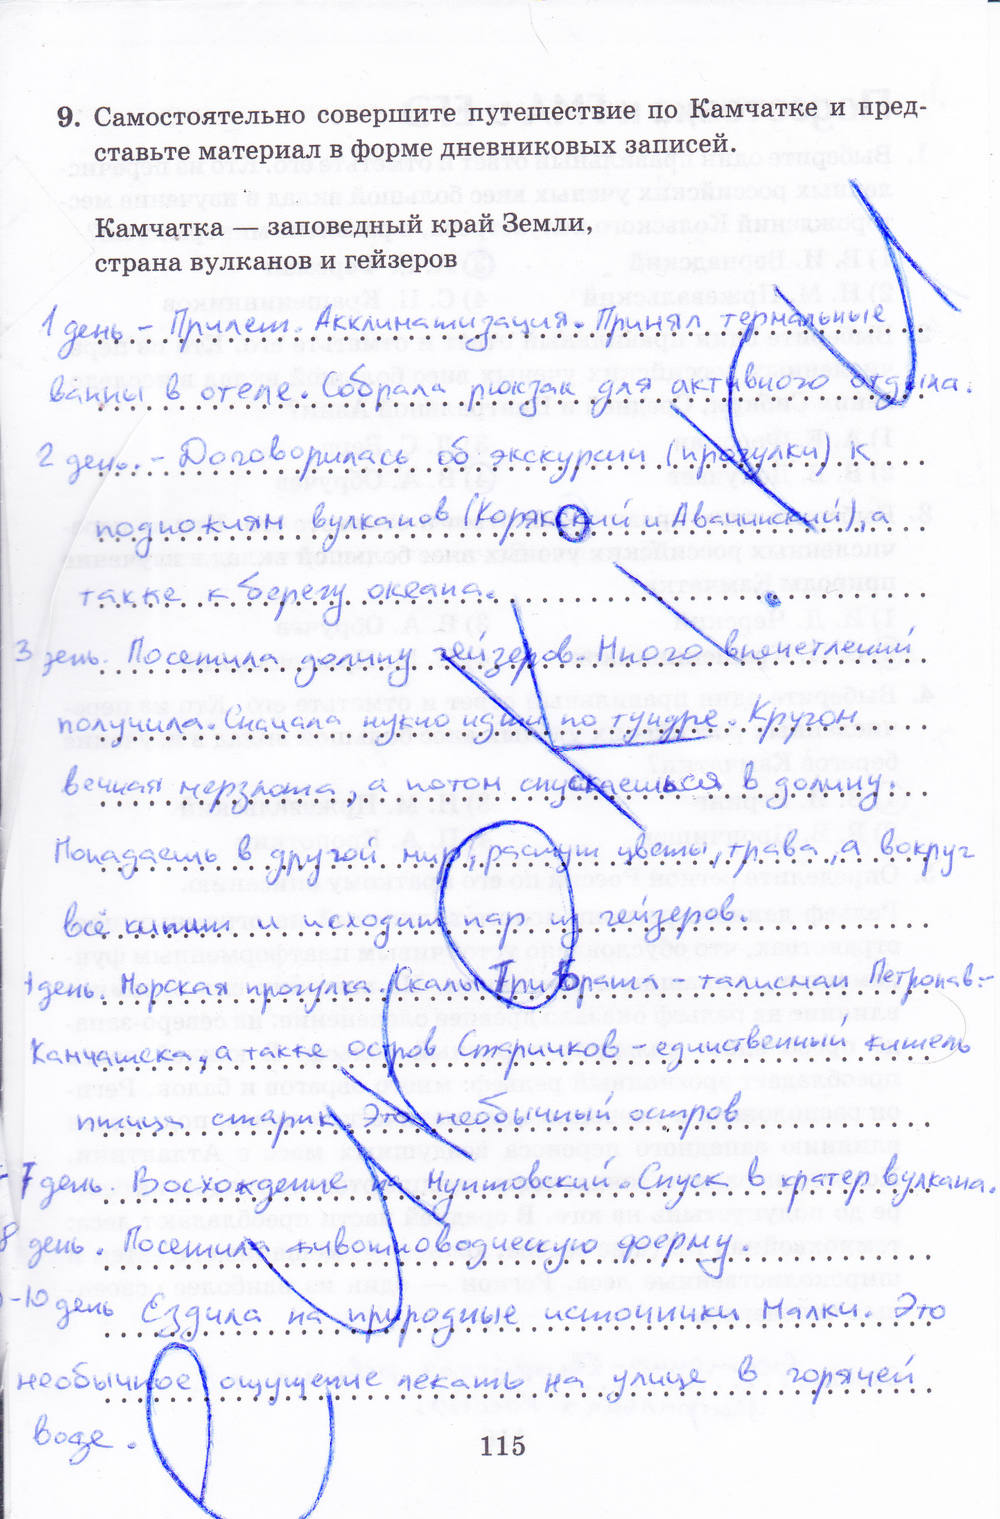 9. Самостоятельно совершите путешествие по Камчатке и пред-
ставьте материал в форме дневниковых записей.
Камчатка — заповедный край Земли,
страна вулканов и гейзеров
1 день - Прилет. Акклиматизация. Принял термальные
ванны в отеле. Собрала рюкзак для активного отдыха.
2 день. - Договорилась об экскурсии (прогулки) к
подножиям вулканов (Корякский и Авачинский), а
также к берегу океана.
3 день. Посетила долину гейзеров. Много впечетлений
получила. Сначала нужно идти по тундре. Кругом
вечная мерзлота, а потом спускаешься в долину.
Попадаешь в другой мир, растут цветы, трава, а вокруг
всё кипит и исходит пар из гейзеров.
день. Морская прогулка. Скалы Три Брата - талисман Петропав-
Камчатска, а также остров Старичков - единственный житель
птица старик. Это необычный остров
7 день. Восхождение на Мутновский. Спуск в кратер вулкана.
8 день. Посетила животноводческую ферму.
-10 день Ездила на природные источники Малки. Это
необычное ощущение лежать на улице в горячей
воде.
115